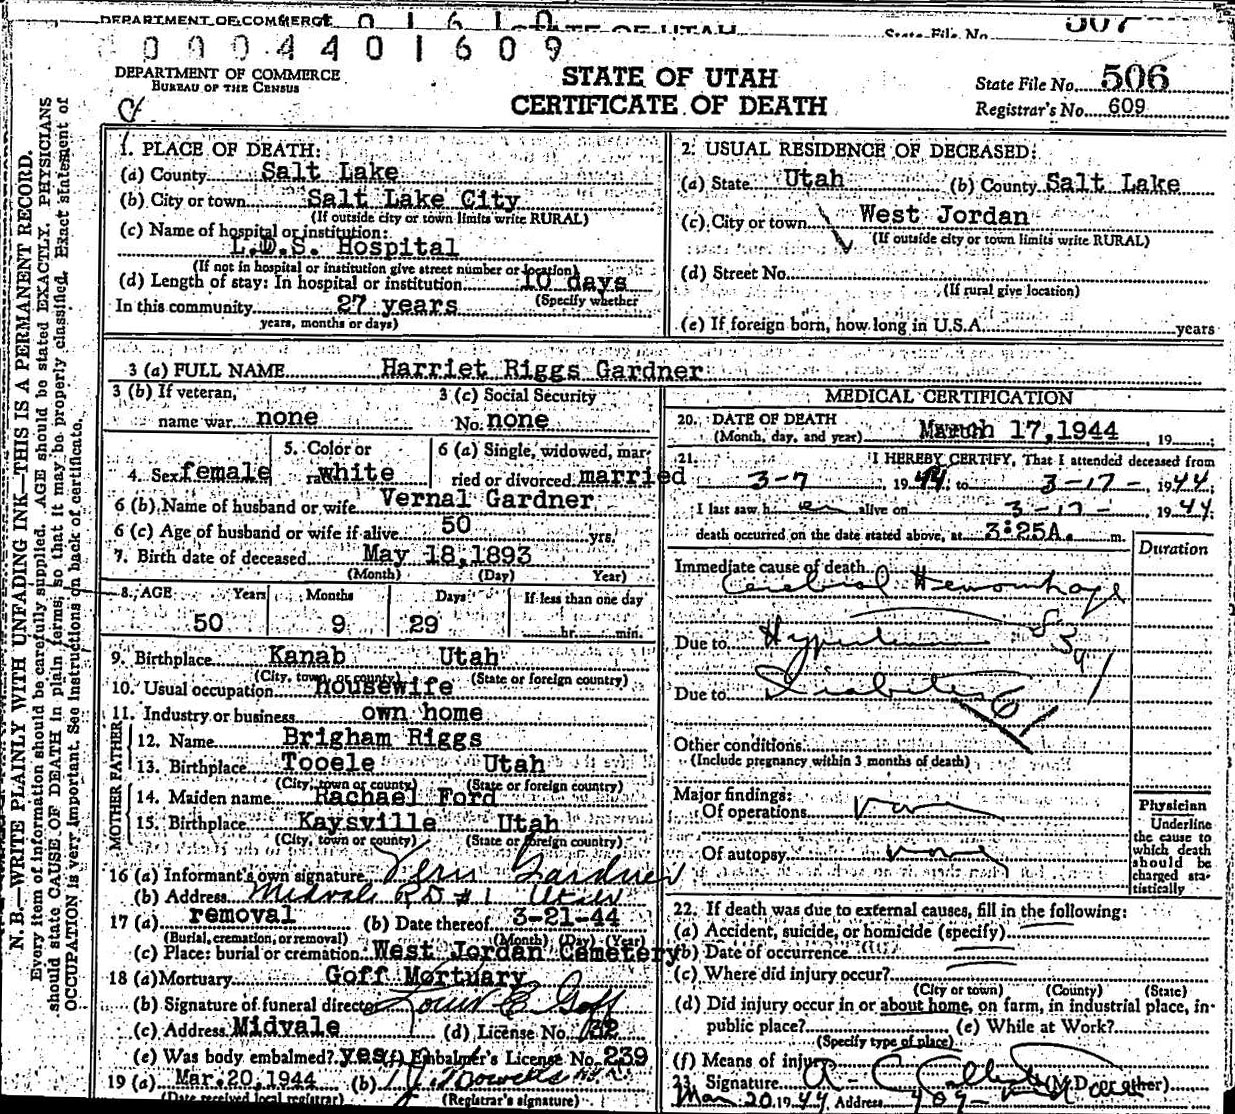 DEPARTMENT OF COMMERCE
STATE OF UTAH
State File No. 507
0004401609
DEPARTMENT OF COMMERCE
BUREAU OF THE CENSUS
STATE OF UTAH
CERTIFICATE OF DEATH
State File No. 506
Registrar's No. 609
N. B.—WRITE PLAINLY WITH UNFADING INK—THIS IS A PERMANENT RECORD.
Every item of information should be carefully supplied. AGE should be stated EXACTLY. PHYSICIANS
should state CAUSE OF DEATH in plain terms, so that it may be properly classified. Exact statement of
OCCUPATION is very important. See instructions on back of certificate.
1. PLACE OF DEATH:
(a) County Salt Lake
(b) City or town Salt Lake City
(If outside city or town limits write RURAL)
(c) Name of hospital or institution:
L.D.S. Hospital
(If not in hospital or institution give street number or location)
(d) Length of stay: In hospital or institution 10 days
(Specify whether
In this community 27 years
years, months or days)
2. USUAL RESIDENCE OF DECEASED:
(a) State Utah (b) County Salt Lake
(c) City or town West Jordan
(If outside city or town limits write RURAL)
(d) Street No.
(If rural give location)
(e) If foreign born, how long in U.S.A. years
3 (a) FULL NAME Harriet Riggs Gardner
3 (b) If veteran, name war none
3 (c) Social Security No. none
4. Sex female
5. Color or race white
6 (a) Single, widowed, married or divorced married
6 (b) Name of husband or wife Vernal Gardner
6 (c) Age of husband or wife if alive 50 yrs.
7. Birth date of deceased May 18, 1893
(Month) (Day) Year)
8. AGE Years Months Days If less than one day
50 9 29 hr. min.
9. Birthplace Kanab Utah
(City, town, or county) (State or foreign country)
10. Usual occupation housewife
11. Industry or business own home
FATHER
12. Name Brigham Riggs
13. Birthplace Tooele Utah
(City, town or county) (State or foreign country)
MOTHER
14. Maiden name Rachael Ford
15. Birthplace Kaysville Utah
(City, town or county) (State or foreign country)
16 (a) Informant's own signature Gardner
(b) Address Midvale R D #1 Utah
17 (a) removal (b) Date thereof 3-21-44
(Burial, cremation, or removal) (Month) (Day) (Year)
(c) Place: burial or cremation West Jordan Cemetery
18 (a) Mortuary Goff Mortuary
(b) Signature of funeral director Goff
(c) Address Midvale (d) License No. 132
(e) Was body embalmed? yes (f) Embalmer's License No. 239
19 (a) Mar. 20, 1944 (b)
(Date received local registrar) (Registrar's signature)
MEDICAL CERTIFICATION
20. DATE OF DEATH
(Month, day, and year) March 17, 1944, 19
21. I HEREBY CERTIFY, That I attended deceased from
3-7, 1944 to 3-17-, 1944
I last saw her alive on 3-17-, 1944
death occurred on the date stated above, at 3:25A. m.
Duration
Immediate cause of death
Cerebral Hemorrhage
Due to
Due to Diabetes
Other conditions
(Include pregnancy within 3 months of death)
Major findings:
Of operations
Of autopsy
Physician
Underline
the cause to
which death
should be
charged sta-
tistically
22. If death was due to external causes, fill in the following:
(a) Accident, suicide, or homicide (specify)
(b) Date of occurrence
(c) Where did injury occur?
(City or town) (County) (State)
(d) Did injury occur in or about home, on farm, in industrial place, in
public place? (e) While at Work?
(Specify type of place)
(f) Means of injury
23. Signature (M.D. or other)
Mar 20 1944 Address